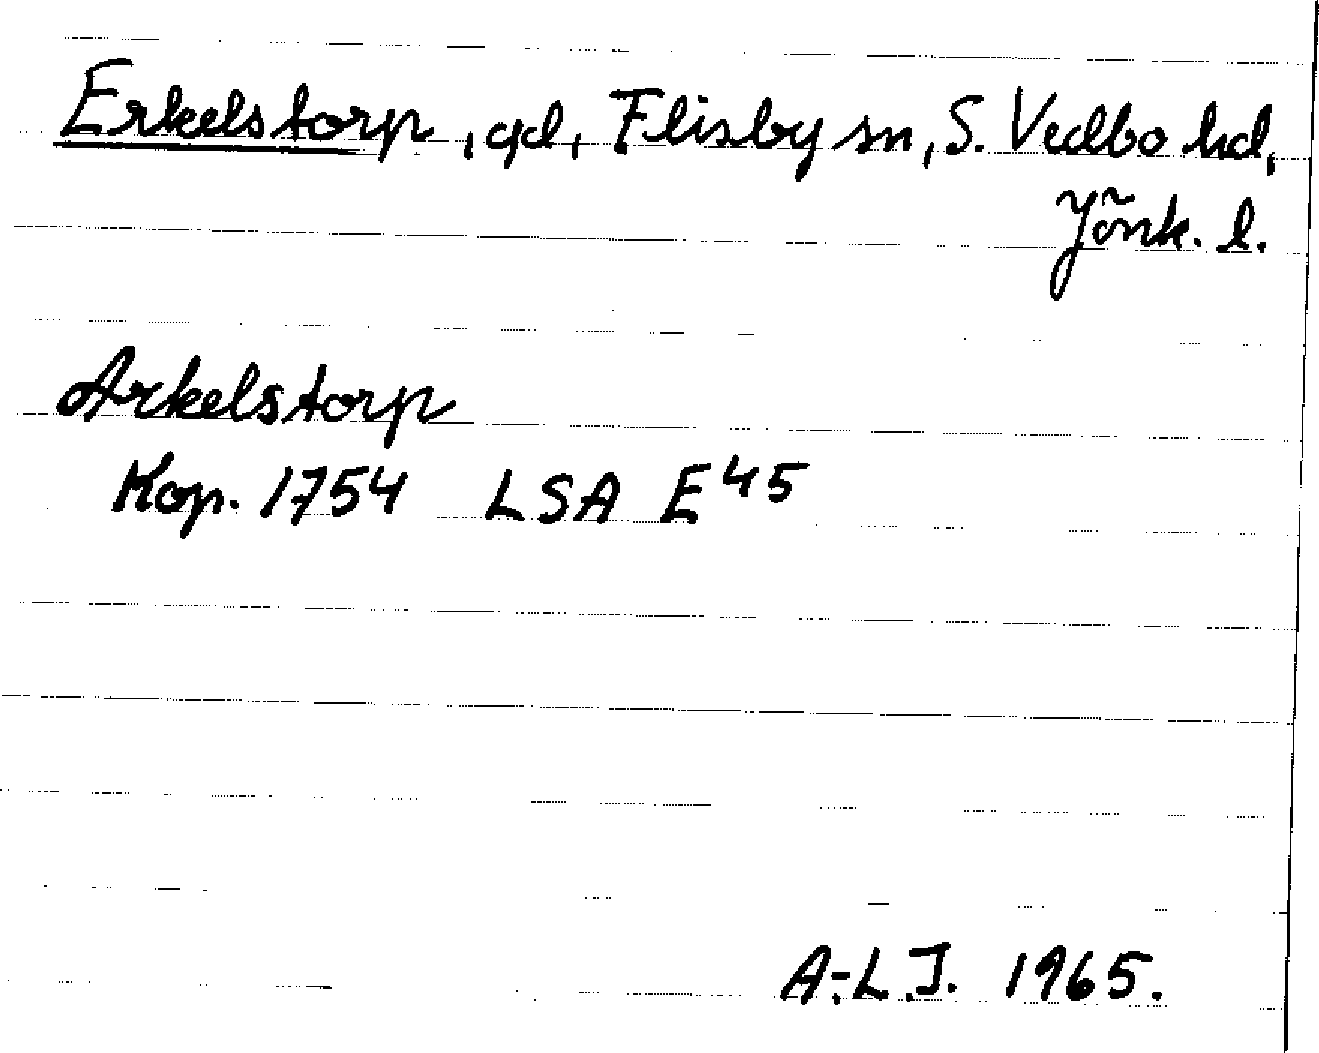 Erkelstorp, gd, Flisby sn, S. Vedbo hd,
Jönk. l.
Arkelstorp
Kop. 1754 LSA E 45
A.-L.J. 1965.